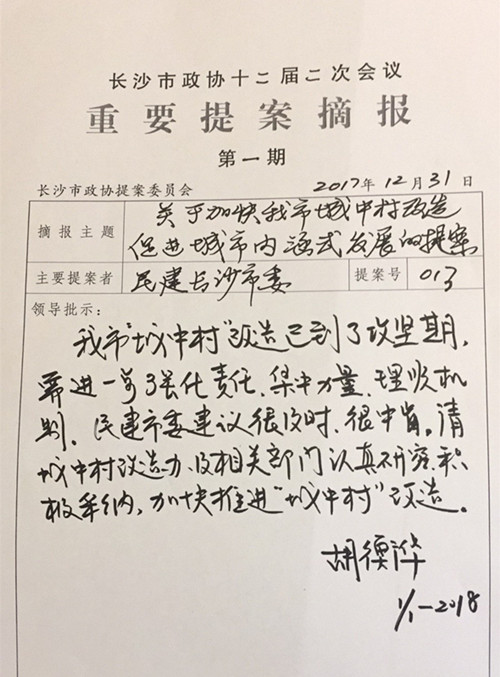 长沙市政协十二届二次会议
重要提案摘报
第一期
长沙市政协提案委员会 2017年12月31日
摘报主题 关于加快我市城中村改造
促进城市内涵式发展的提案
主要提案者 民建长沙市委 提案号 013
领导批示:
我市“城中村”改造已到了攻坚期,
需进一步强化责任、集中力量、理顺机
制。民建市委建议很及时、很中肯。请
城中村改造办及相关部门认真研究,积
极采纳,加快推进“城中村”改造。
胡衡华
1/1-2018